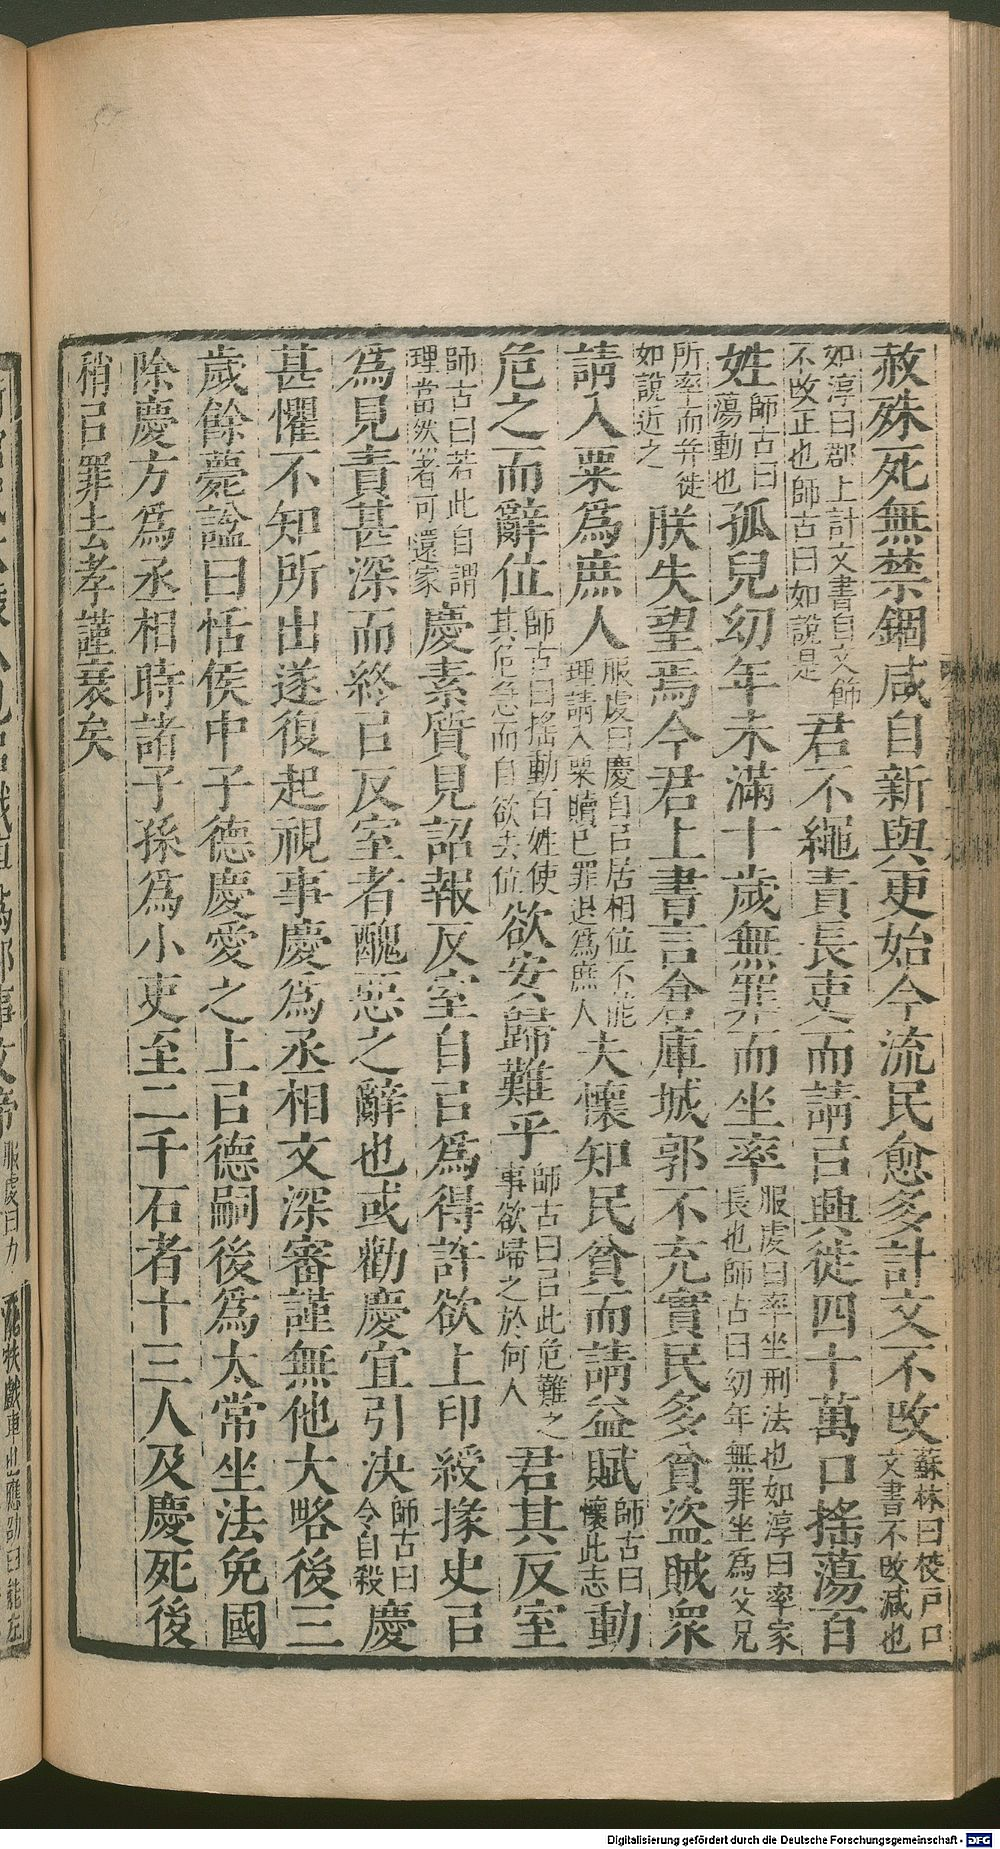 赦殊死無禁錮咸自新與更始今流民愈多計文不改蘇林曰校戶口文書不改減也
如淳曰郡上計文書自文飾不改正也師古曰如說是君不繩責長吏而請㠯興徙四十萬口搖蕩百
姓師古曰蕩動也孤兒幼年未滿十歲無罪而坐率服虔曰率坐刑法也如淳曰率家長也師古曰幼年無罪坐爲父兄
所率而并徙如說近之朕失望焉今君上書言倉庫城郭不充實民多貧盜賊衆
請入粟爲庶人服虔曰慶自㠯居相位不能理請入粟贖己罪退爲庶人夫懷知民貧而請益賦師古曰懷此志動
危之而辭位師古曰搖動百姓使其危急而自欲去位欲安歸難乎師古曰㠯此危難之事欲歸之於何人君其反室
師古曰若此自謂理當然者可還家慶素質見詔報反室自㠯爲得許欲上印綬掾史㠯
爲見責甚深而終㠯反室者醜惡之辭也或勸慶宜引決師古曰令自殺慶
甚懼不知所出遂復起視事慶爲丞相文深審謹無他大略後三
歲餘薨諡曰恬侯中子德慶愛之上㠯德嗣後爲太常坐法免國
除慶方爲丞相時諸子孫爲小吏至二千石者十三人及慶死後
稍㠯罪去孝謹衰矣
Digitalisierung gefördert durch die Deutsche Forschungsgemeinschaft - DFG